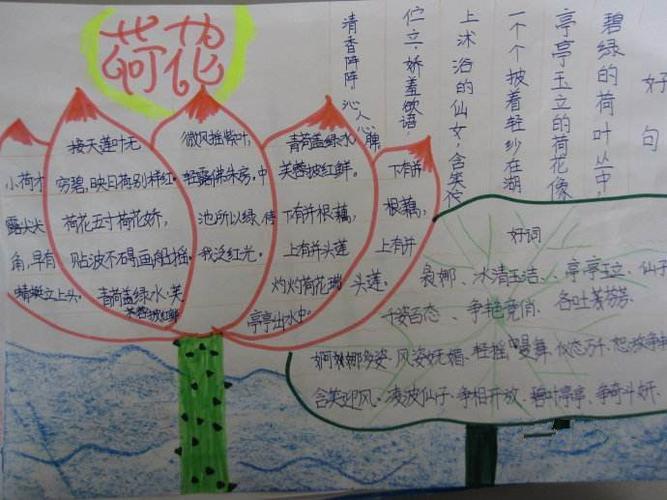 荷花
好句
碧绿的荷叶丛中,
亭亭玉立的荷花像
一个个披着轻纱在湖
上沐浴的仙女,含笑
伫立,娇羞欲语,
清香阵阵,沁人心脾
小荷才
露尖尖
角,早有
蜻蜓立上头
接天莲叶无
穷碧,映日荷别样红。
荷花五寸荷花娇,
贴波不碍画船摇
青荷盖绿水,芙
蓉披红鲜
微风摇紫叶,
轻露拂朱房。中
池所以绿,待
我泛红光。
青荷盖绿水
芙蓉披红鲜。
下有并根藕,
上有并头莲
灼灼荷花瑞
亭亭出水中。
下有并
根藕,
上有并
头莲。
好词
袅娜、冰清玉洁、亭亭玉立、仙子
千姿百态、争艳竞俏、各吐芬芳、
婀娜多姿、风姿妩媚、轻摇曼舞、仪态万千、
含笑迎风、凌波仙子、争相开放、碧叶亭亭、争奇斗妍、